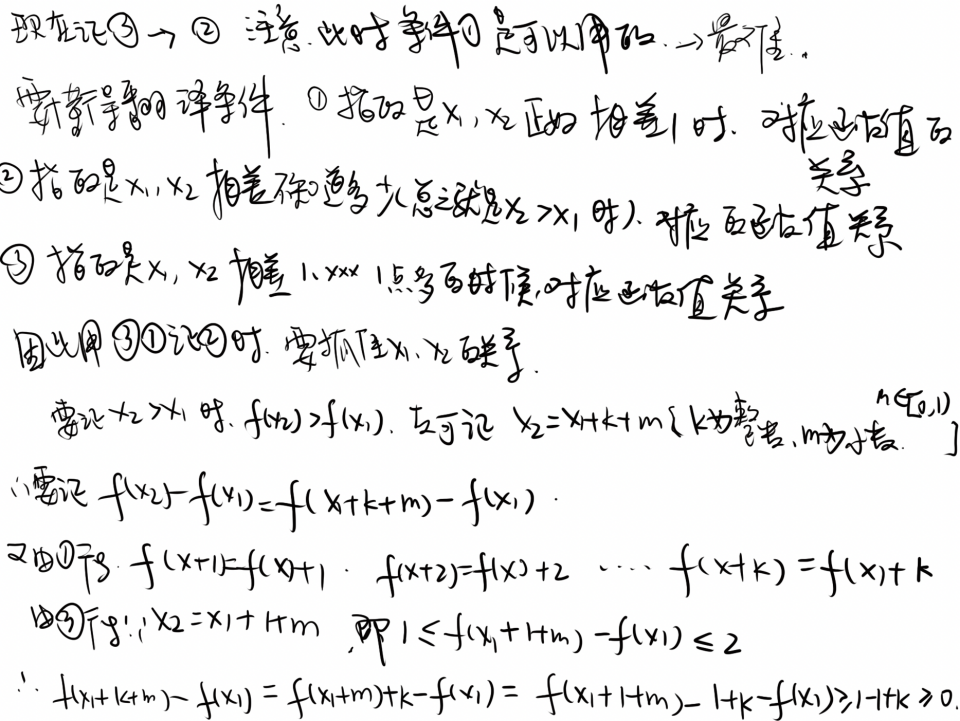 现在证③→② 注意.此时条件①是可以用的.→最难..
要重新翻译条件. ①指的是x₁,x₂正好相差1时.对应函数值的关系
②指的是x₁,x₂相差不知道多少(总之就是x₂>x₁时).对应的函数值关系
③指的是x₁,x₂相差1.xxx 1点多的时候,对应函数值关系
因此用③①证②时.要抓住x₁、x₂的关系.
要证x₂>x₁时.f(x₂)>f(x₁). 可记 x₂=x₁+k+m[k为整数,m为小数. m∈[0,1)]
∴要证 f(x₂)-f(x₁)=f(x₁+k+m)-f(x₁).
又由①可得. f(x+1)=f(x)+1. f(x+2)=f(x)+2 ····· f(x+k)=f(x)+k
由③可得∵x₂=x₁+1+m ,即1≤f(x₁+1+m)-f(x₁)≤2
∴ f(x₁+k+m)-f(x₁)=f(x₁+m)+k-f(x₁)= f(x₁+1+m)-1+k-f(x₁)≥1-1+k≥0.